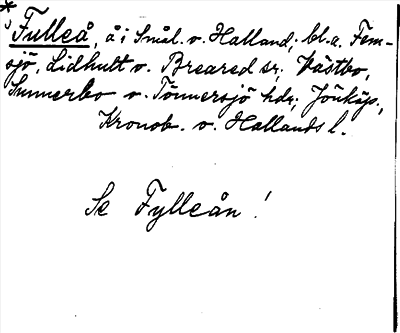 * Fulleå, å i Smål. o. Halland, bl.a. Fem-
sjö, Lidhult o. Breared sr; Västbo,
Sunnerbo o. Tönnersjö hdr; Jönköp.,
Kronob. o. Hallands l.
Se Fylleån!